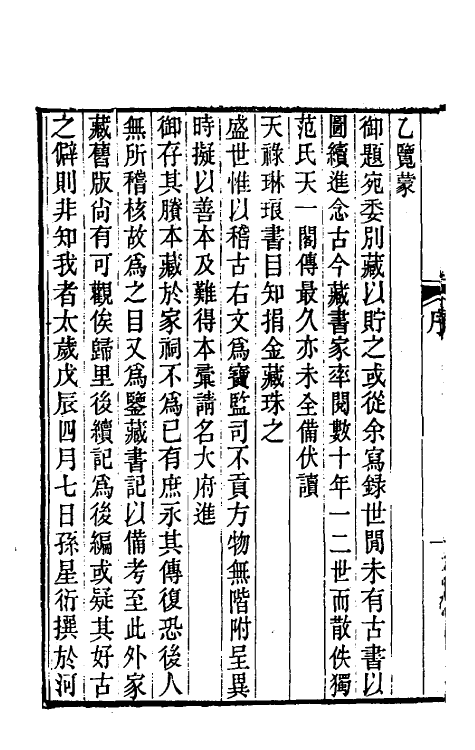 乙覽蒙
御題宛委別藏以貯之或從余寫録世閒未有古書以
圖續進念古今藏書家率閱數十年一二世而散佚獨
范氏天一閣傳最久亦未全備伏讀
天祿琳琅書目知捐金藏珠之
盛世惟以稽古右文爲寶監司不貢方物無階附呈異
時擬以善本及難得本彙請名大府進
御存其賸本藏於家祠不爲已有庶永其傳復恐後人
無所稽核故爲之目又爲鑒藏書記以備考至此外家
藏舊版尙有可觀俟歸里後續記爲後編或疑其好古
之僻則非知我者太歲戊辰四月七日孫星衍撰於河
序